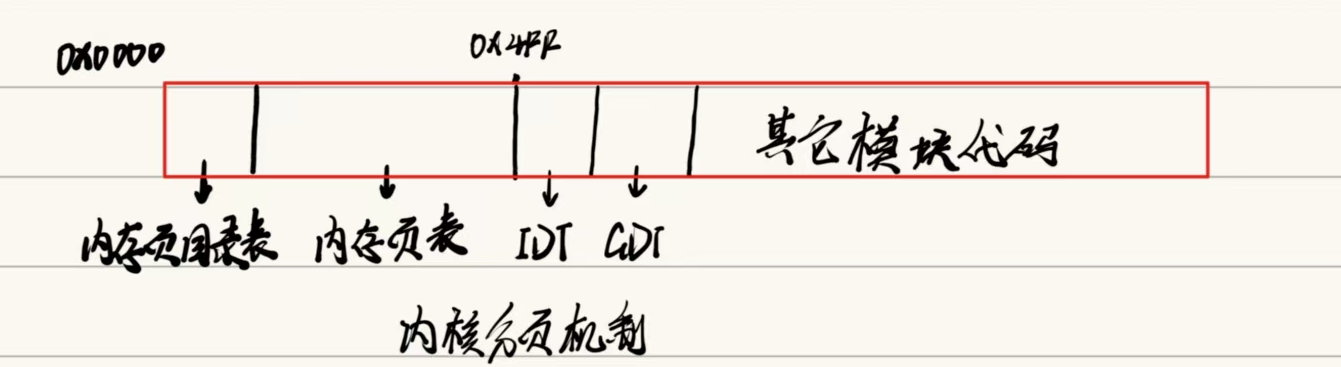 0X0000 0X4FF
其它模块代码
内存页目录表 内存页表 IDT GDT
内核分页机制